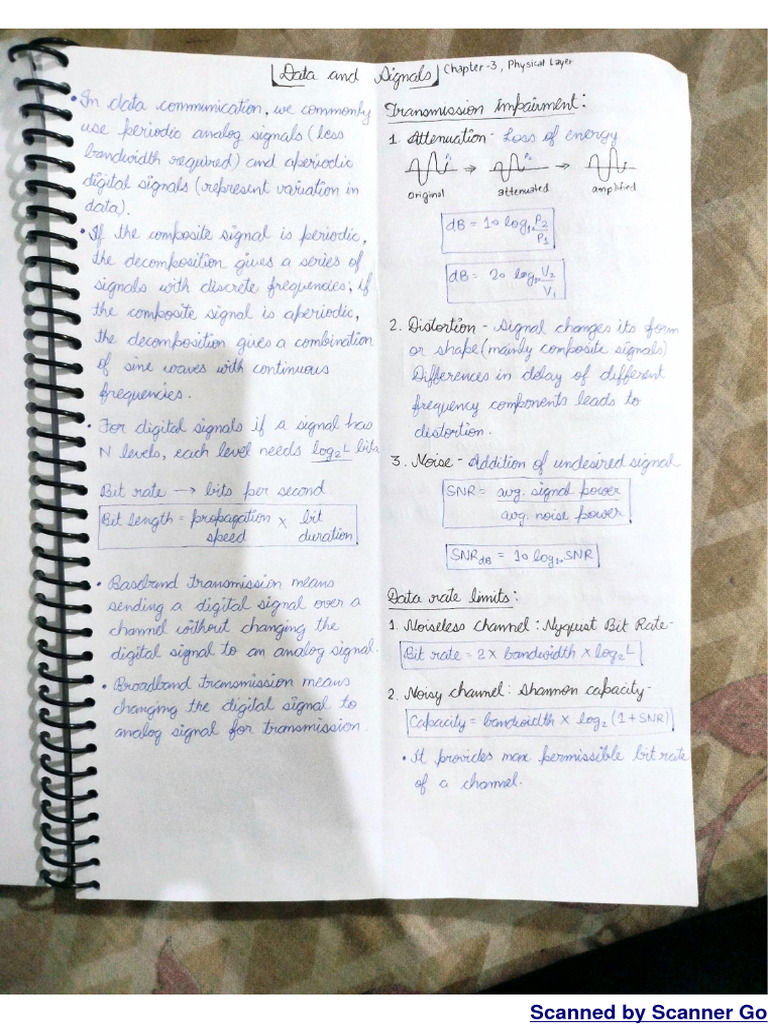 Data and Signals
Chapter-3, Physical Layer
• In data communication, we commonly
use periodic analog signals (less
bandwidth required) and aperiodic
digital signals (represent variation in
data).
• If the composite signal is periodic,
the decomposition gives a series of
signals with discrete frequencies; if
the composite signal is aperiodic,
the decomposition gives a combination
of sine waves with continuous
frequencies.
• For digital signals if a signal has
N levels, each level needs log₂L bits
Bit rate → bits per second
Bit length = propagation speed × bit duration
• Baseband transmission means
sending a digital signal over a
channel without changing the
digital signal to an analog signal.
• Broadband transmission means
changing the digital signal to
analog signal for transmission.
Transmission impairment:
1. Attenuation - Loss of energy
P₁ ⇒ P₂ ⇒
original attenuated amplified
dB = 10 log₁₀ P₂/P₁
dB = 20 log₁₀ V₂/V₁
2. Distortion - Signal changes its form
or shape (mainly composite signals)
Differences in delay of different
frequency components leads to
distortion.
3. Noise - Addition of undesired signal
SNR = avg. signal power
avg. noise power
SNR dB = 10 log₁₀ SNR
Data rate limits:
1. Noiseless channel: Nyquist Bit Rate-
Bit rate = 2 × bandwidth × log₂L
2. Noisy channel: Shannon capacity-
Capacity = bandwidth × log₂ (1 + SNR)
• It provides max permissible bit rate
of a channel.
Scanned by Scanner Go